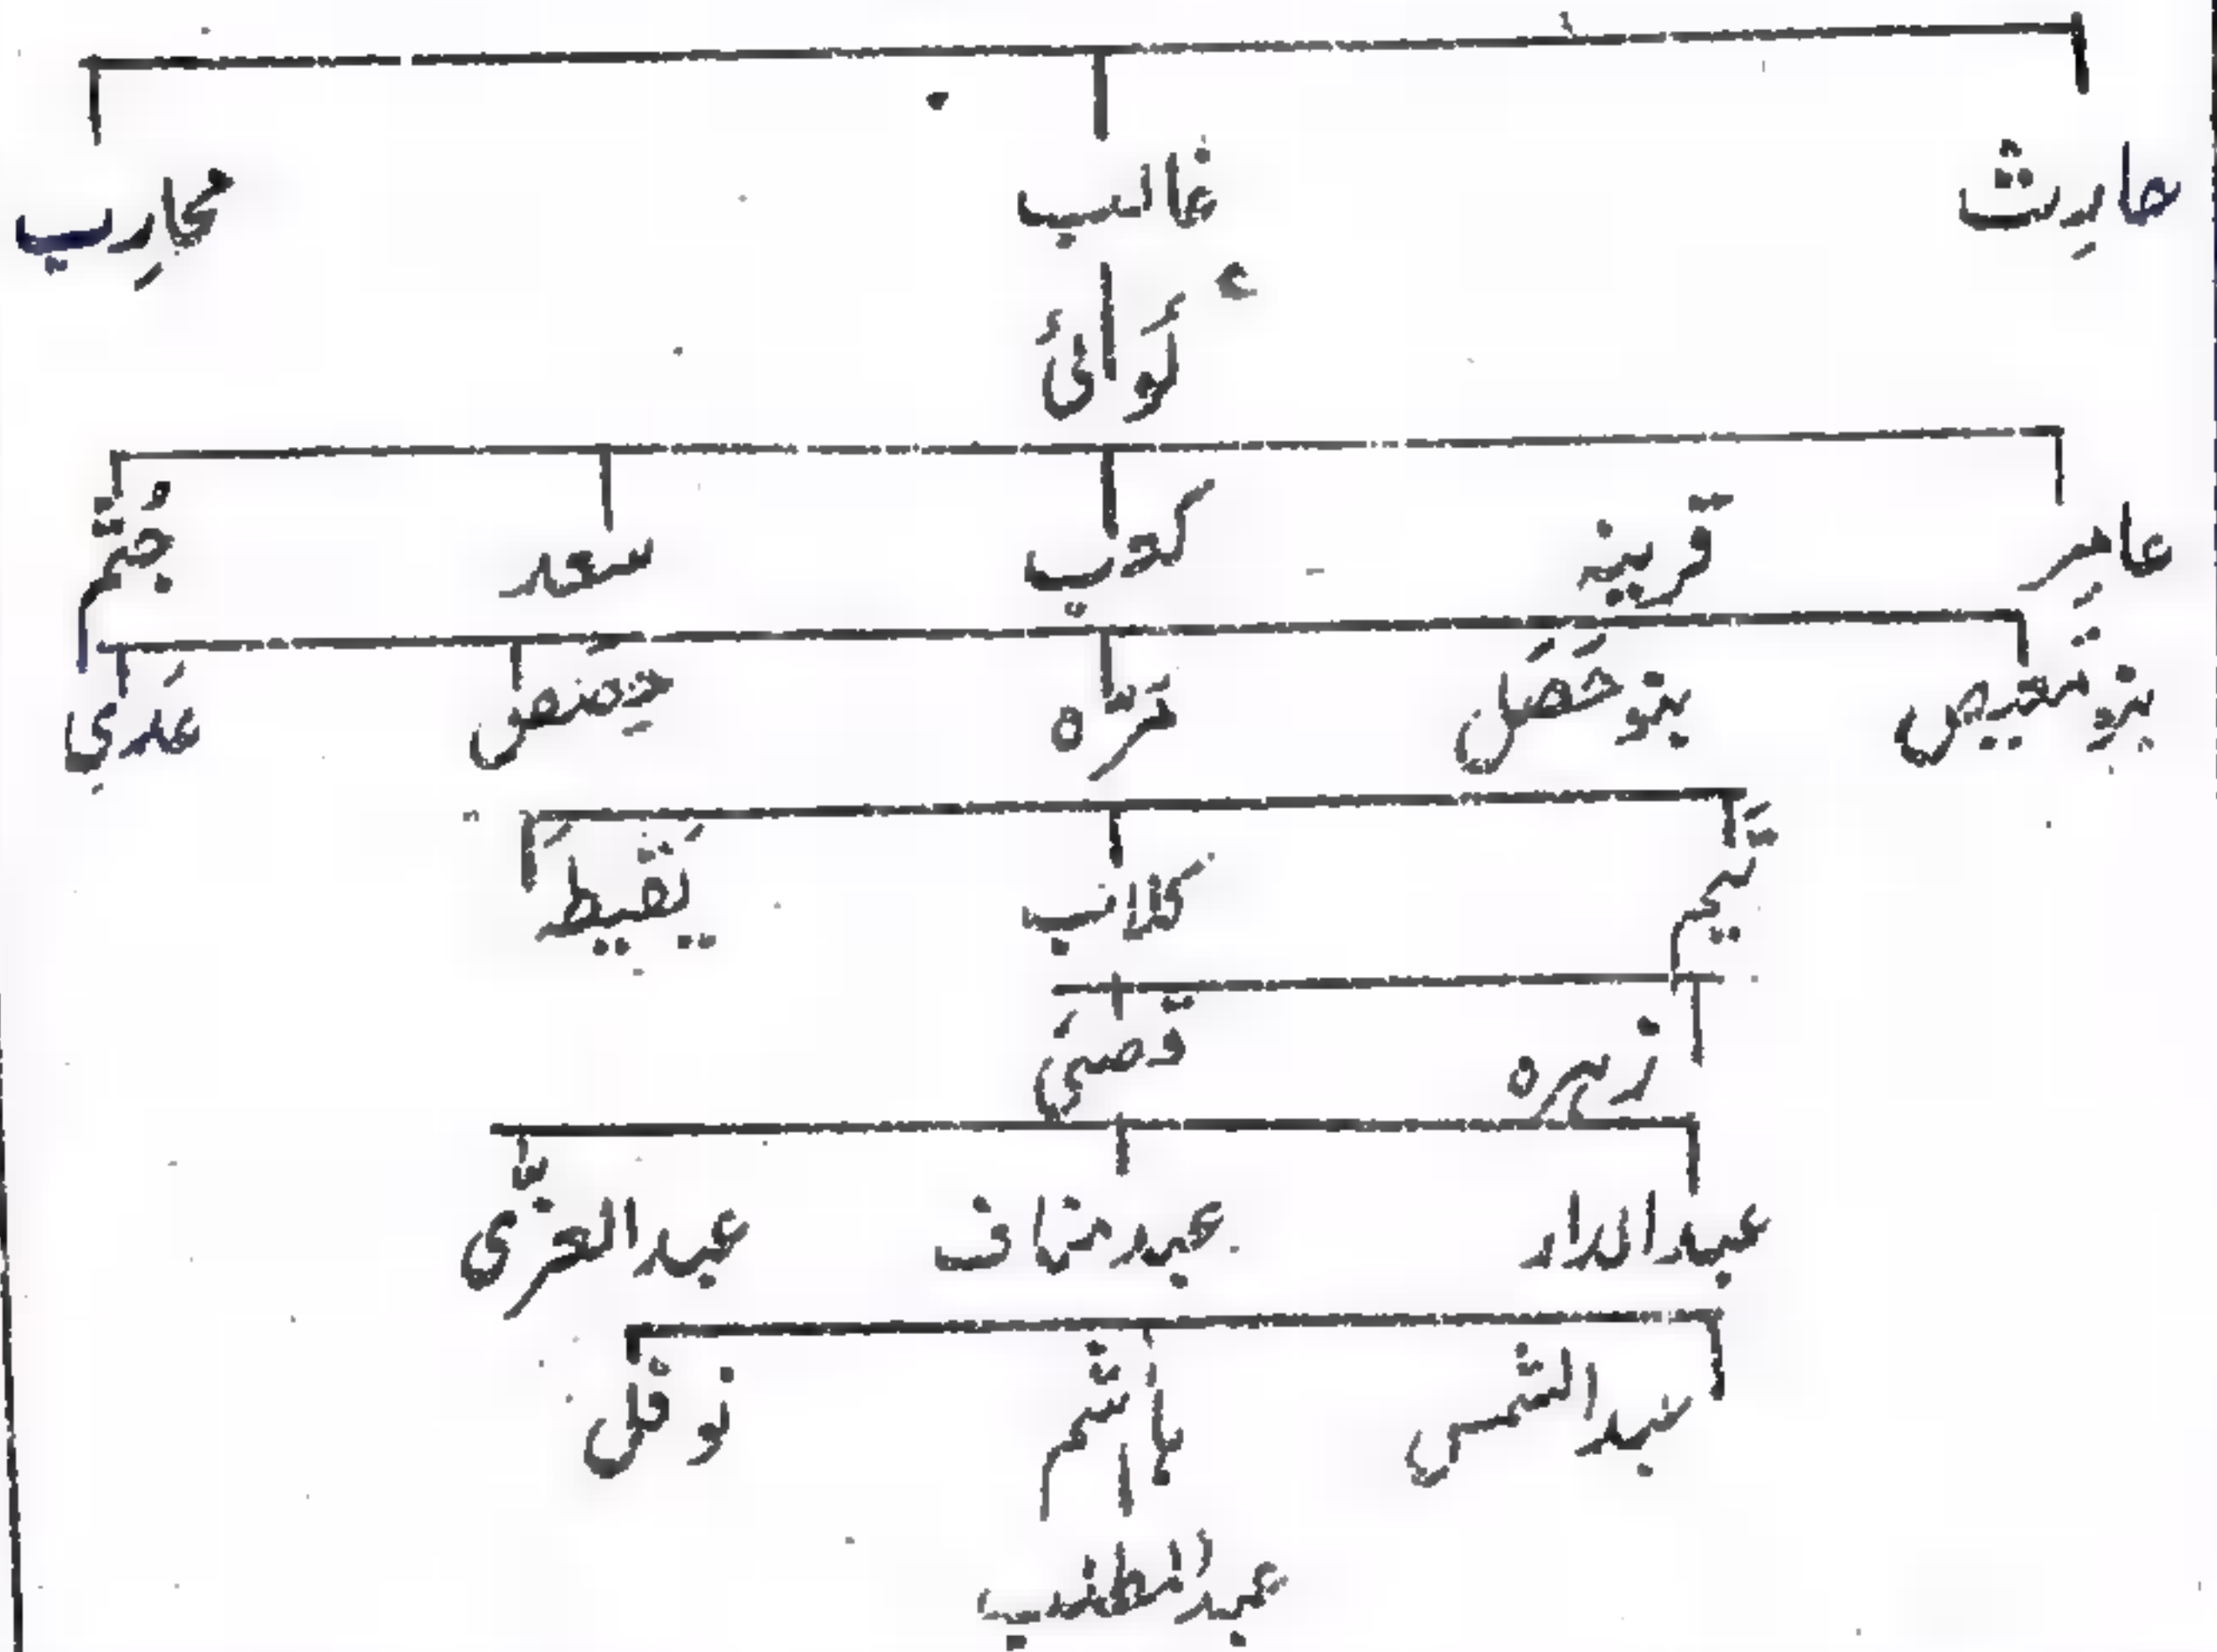 حارِث غالب محارِب
لَوائ
عامِر قرینہ کعب سعد جُثم
بنو مَعیص بنو حَصَل مَرّہ حِصَص عَدِی
تَیم کلاب یَقیطَہ
زہرہ قصَی
عبدالدار عبد مناف عبدالعزّی
عبدالشمس ہاشم نوفل
عبدالمطلب